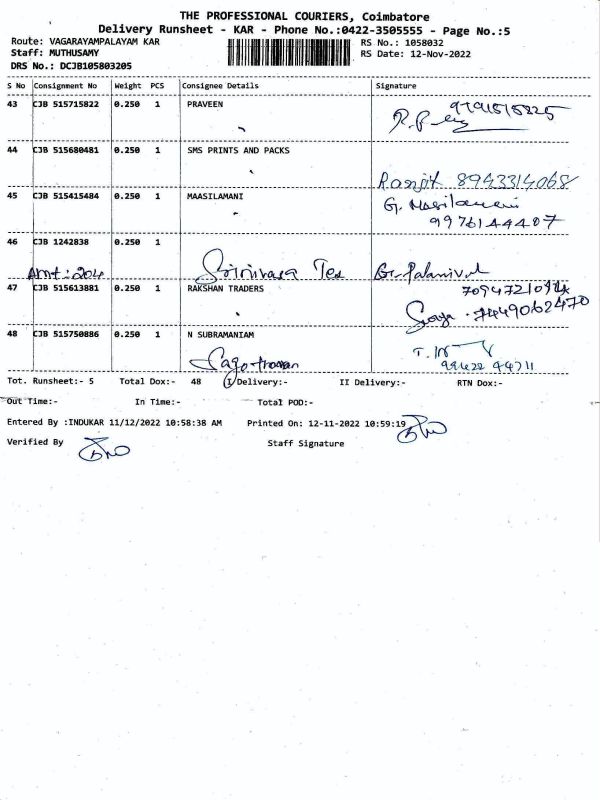 THE PROFESSIONAL COURIERS, Coimbatore
Delivery Runsheet - KAR - Phone No.:0422-3505555 - Page No.:5
Route: VAGARAYAMPALAYAM KAR
RS No.: 1058032
Staff: MUTHUSAMY
RS Date: 12-Nov-2022
DRS No.: DCJB105803205
S No Consignment No Weight PCS Consignee Details Signature
43 CJB 515715822 0.250 1 PRAVEEN
44 CJB 515680481 0.250 1 SMS PRINTS AND PACKS
Ranjit 8943314068
45 CJB 515415484 0.250 1 MAASILAMANI G. Masilamani
9976144407
46 CJB 1242838 0.250 1
Amt: 204 Srinivasa Tex G. Palanivel
7094721014
47 CJB 515613881 0.250 1 RAKSHAN TRADERS
7449062470
48 CJB 515750886 0.250 1 N SUBRAMANIAM
99422 44711
Tot. Runsheet:- 5 Total Dox:- 48 I Delivery:- II Delivery:- RTN Dox:-
Out Time:- In Time:- Total POD:-
Entered By :INDUKAR 11/12/2022 10:58:38 AM Printed On: 12-11-2022 10:59:19
Verified By Staff Signature